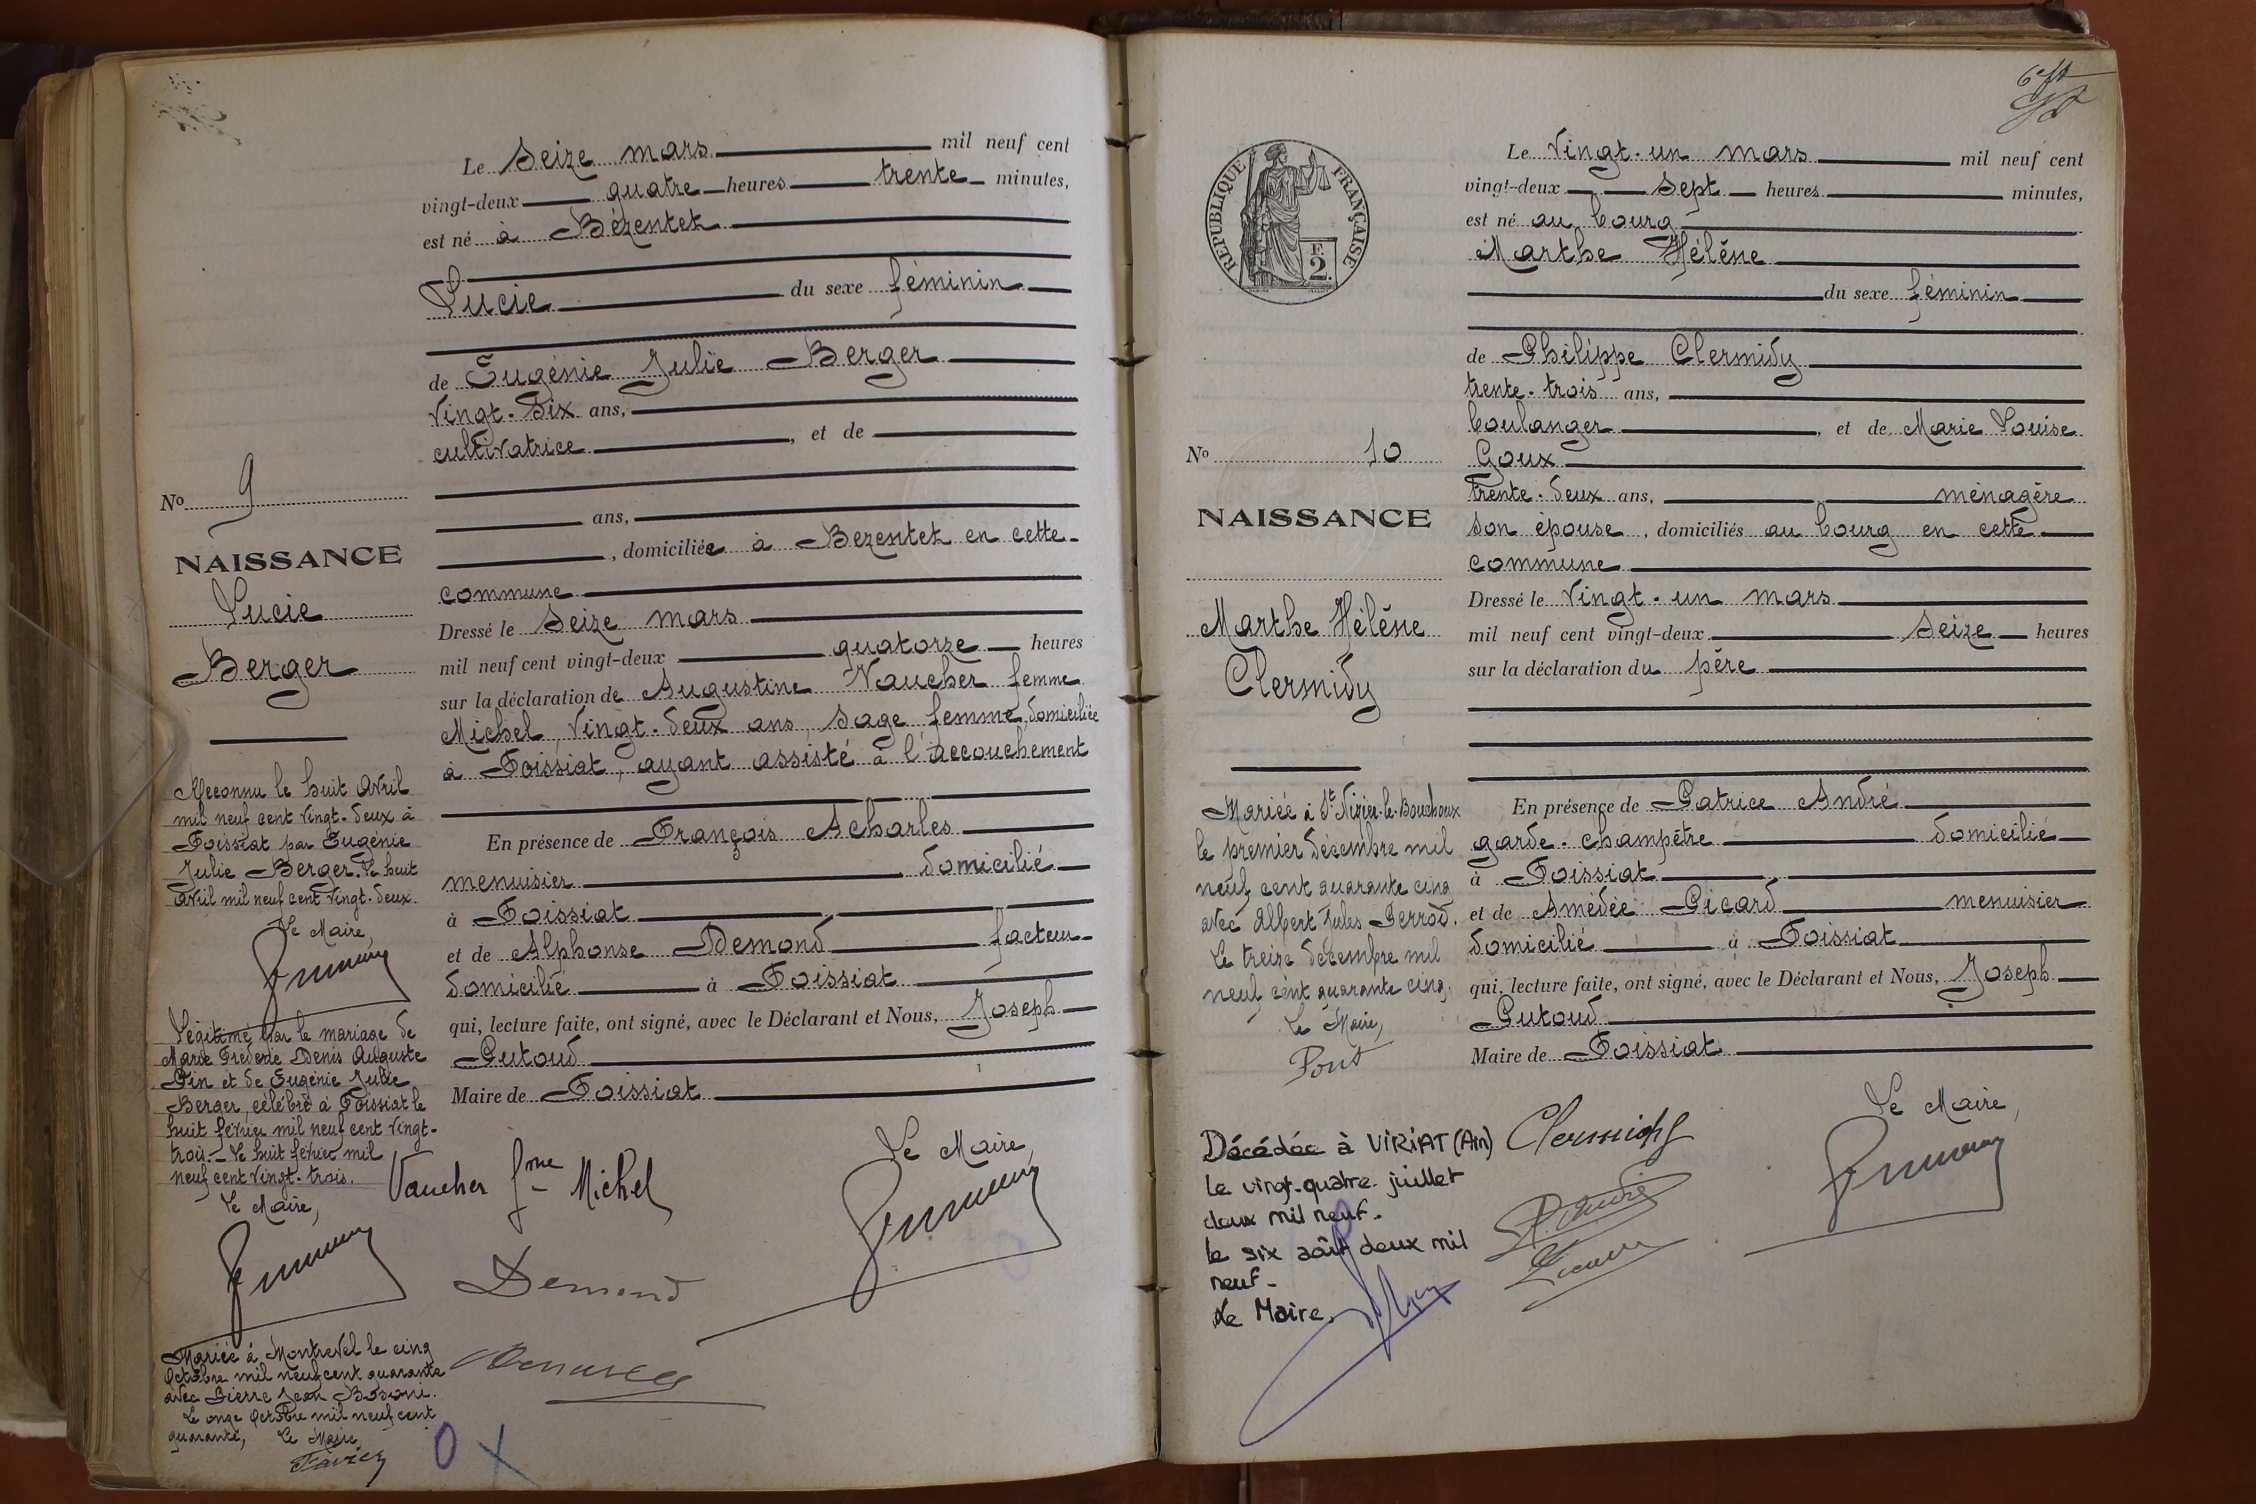 Le Seize mars mil neuf cent
vingt-deux quatre heures trente minutes,
est né à Bézentet
Lucie du sexe féminin
de Eugénie Julie Berger
vingt-six ans,
cultivatrice, et de
ans,
, domiciliée à Bezentet en cette
commune
Dressé le Seize mars
mil neuf cent vingt-deux quatorze heures
sur la déclaration de Augustine Vaucher femme
Michel, vingt-deux ans, sage femme, domiciliée
à Foissiat, ayant assisté à l'accouchement
En présence de François Acharles
menuisier domicilié
à Foissiat
et de Alphonse Demond facteur
domicilié à Foissiat
qui, lecture faite, ont signé, avec le Déclarant et Nous, Joseph
Putoud
Maire de Foissiat
Le Maire,
Vaucher fme Michel
Demond
No 9
NAISSANCE
Lucie
Berger
Reconnu le huit Avril
mil neuf cent vingt-deux à
Foissiat par Eugénie
Julie Berger. Le huit
Avril mil neuf cent vingt-deux.
Le Maire,
Légitimé par le mariage de
Marie Frédéric Denis Auguste
Pin et de Eugénie Julie
Berger, célébré à Foissiat le
huit février mil neuf cent vingt-
trois. Le huit février mil
neuf cent vingt-trois.
Le Maire,
Mariée à Montrevel le cinq
Octobre mil neuf cent quarante
avec Pierre Jean
Le onze Octobre mil neuf cent
quarante, Le Maire
O X
RÉPUBLIQUE FRANÇAISE
F. 2.
Le Vingt-un mars mil neuf cent
vingt-deux sept heures minutes,
est né au bourg
Marthe Hélène
du sexe féminin
de Philippe Clermidy
trente-trois ans,
boulanger, et de Marie Louise
Goux
trente-deux ans, ménagère
son épouse, domiciliés au bourg en cette
commune
Dressé le Vingt-un mars
mil neuf cent vingt-deux Seize heures
sur la déclaration du père
En présence de Patrice André
garde-champêtre domicilié
à Foissiat
et de Amédée Picard menuisier
domicilié à Foissiat
qui, lecture faite, ont signé, avec le Déclarant et Nous, Joseph
Putoud
Maire de Foissiat
Le Maire,
Clermidy
No 10
NAISSANCE
Marthe Hélène
Clermidy
Mariée à St Nizier-le-Bouchoux
le premier décembre mil
neuf cent quarante cinq
avec Albert Jules Perrod.
Le treize décembre mil
neuf cent quarante cinq.
Le Maire,
Pont
Décédée à VIRIAT (Ain)
le vingt-quatre juillet
deux mil neuf-
le six août deux mil
neuf-
Le Maire,